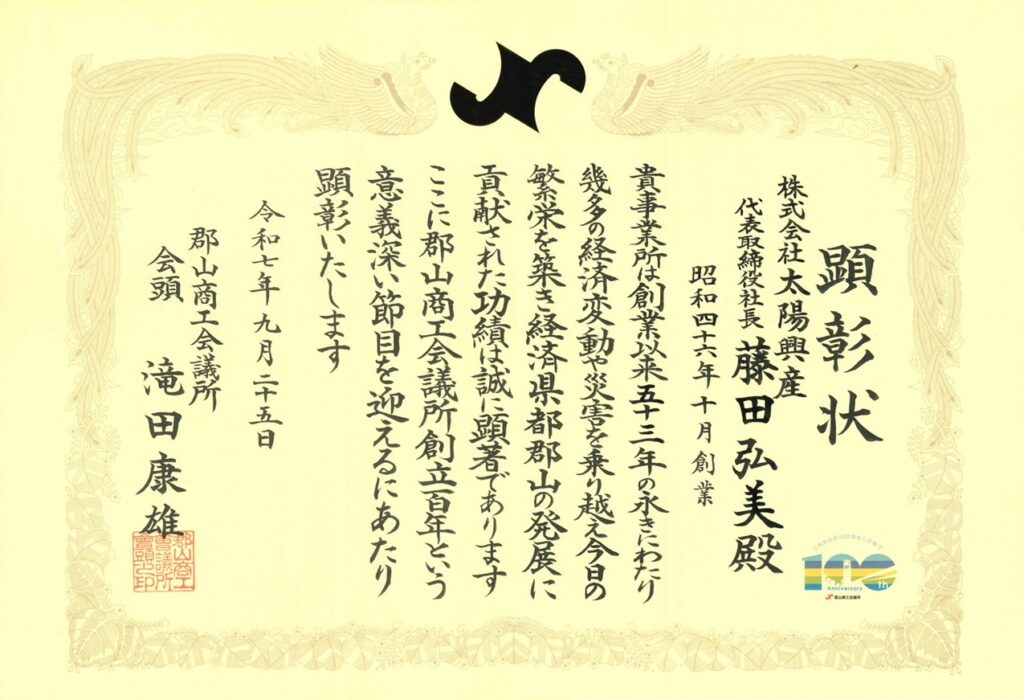 顕彰状
株式会社 太陽興産
代表取締役社長 藤田弘美殿
昭和四十六年十月創業
貴事業所は創業以来五十三年の永きにわたり
幾多の経済変動や災害を乗り越え今日の
繁栄を築き経済県都郡山の発展に
貢献された功績は誠に顕著であります
ここに郡山商工会議所創立百年という
意義深い節目を迎えるにあたり
顕彰いたします
令和七年九月二十五日
郡山商工会議所
会頭 滝田康雄
郡山商工
会議所
会頭之印
100th
Anniversary
郡山商工会議所